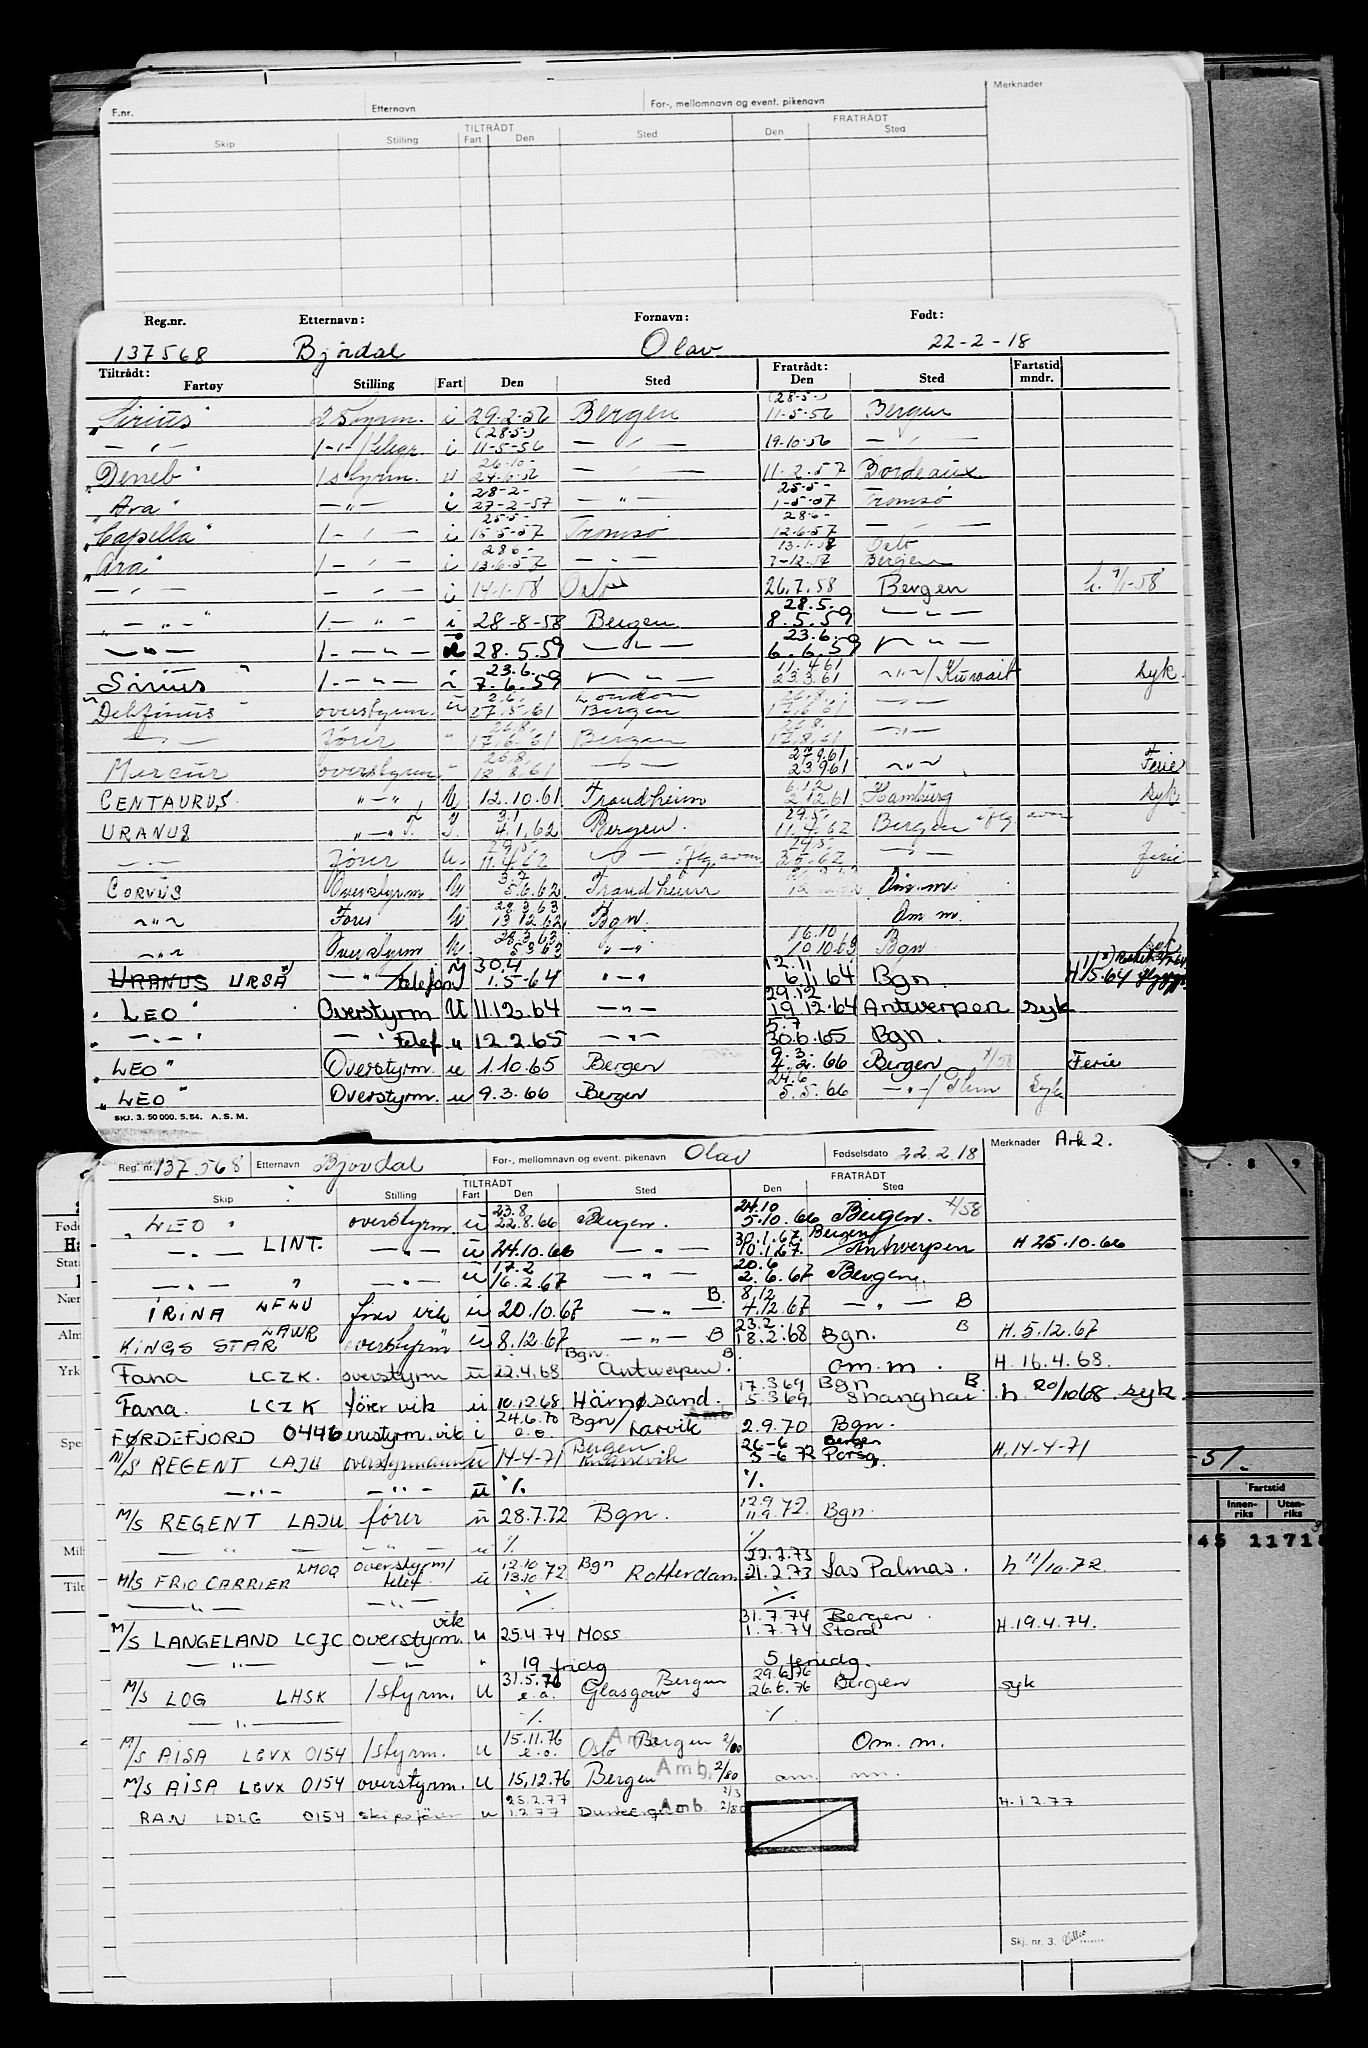 Merknader
F.nr. Etternavn For-, mellomnavn og event. pikenavn
TILTRÅDT FRATRÅDT
Skip Stilling Fart Den Sted Den Sted
Reg.nr. Etternavn: Fornavn: Født:
137568 Bjordal Olav 22-2-18
Tiltrådt: Fratrådt: Fartstid
Fartøy Stilling Fart Den Sted Den Sted mndr.
(28-5-)
"Sirius" 2 Styrm. i 29-2-56 Bergen 11-5-56 Bergen
(28-5-)
— " — 1-"-/telegr. i 11-5-56 — " — 19-10-56 — " —
26-10-
"Deneb" 1 styrm. — " — 11-2-57 Bordeaux
28-2- 25-5-
"Ara" — " — i 27-2-57 — " — 1-5-57 Tromsø
25-5- 28-6-
"Capella" 1- " — i 15-5-57 Tromsø 12-6-57 — " —
28-6- 13-1-58 Oslo
"Ara" 1- " — i 13-6-57 — " — 7-12-57 Bergen
— " — — " — i 14-1-58 Oslo 26.7.58 Bergen h. 7/1-58
28.5.
" — " — " 1- " — i 28-8-58 Bergen 8.5.59 — " —
23.6.
— " — 1- — " — 28.5.59 — " — 6.6.59 — " —
23.6. 11.4.61
Sirius " 1. — " — i 7.6.59 — " — 23.3.61 — " — / Kuwait syk.
2.6. London 26.8.
"Delfinus" overstyrm. u 27.5.61 Bergen — " —
26.8. 26.8.
— " — fører " 17.6.61 Bergen 17.8.61 — " —
26.8. 27.9.61
Mercur overstyrm. " 18.8.61 — " — 23.9.61 — " — Ferie
6.12
CENTAURUS " — " U 12.10.61 Trondheim 2.12.61 Hamburg syk.
3.1 29.5.
URANUS " — " T. 4.1.62 Bergen. 11.4.62 Bergen
29.5.
— " — Fører U. 11.4.62 — " — — " — ferie
3.7
CORVUS Overstyrm U 5.6.62 Trondheim Om. m.
28.3.63
— " — Fører U. 13.12.62 Bgn. Om m.
28.3.63 16.10
— " — Overstyrm U 5.3.63 " — " 10.10.63 Bgn
30.4 12.11
URANUS URSA — " — /telefon U 1.5-64 " — " 6.11.64 Bgn
29.12
" LEO " Overstyrm U 11.12.64 — " — 19.12.64 Antwerpen syk
5.7
" — . — " — " — telef. u 12.2.65 — " — 30.6.65 Bgn.
9.3.
" LEO " Overstyrm. u 1.10.65 Bergen 4.2.66 Bergen x/58 Ferie
24.6
" LEO " Overstyrm. u 9.3.66 Bergen 5.5.66 — " — / Thm Syk
SKJ. 3. 50 000. 5.54. A.S.M.
Merknader Ark 2.
Reg. nr. 137.568 Etternavn Bjordal For-, mellomnavn og event. pikenavn Olav Fødselsdato 22.2.18
TILTRÅDT FRATRÅDT
Skip Stilling Fart Den Sted Den Sted
23.8 24.10
LEO " overstyrm. u 22.8.66 Bergen. 5.10.66 Bergen. x/58
30.1.67. Bergen
" — " — LINT. — " — u 24.10.66 — " — 10.1.67. Antwerpen H 25.10.66
17.2 20.6
— " — " — " — u 16.2.67 — " — 2.6.67 Bergen
8.12
IRINA LFLU fører vik u 20.10.67 — " — B. 4.12.67 — " — B
23.2.
KINGS STAR LAWR overstyrm u 8.12.67 — " — B 18.2.68 Bgn. B H.5.12.67
Bgn. B.
Fana LCZK. overstyrm u 22.4.68 Antwerpen. om. m. H. 16.4.68.
17.3.69 Bgn B
Fana. LCZK fører vik u 10.12.68 Härnøsand. 5.3.69 Shanghai h 20/1068 syk.
24.6.70 Bgn/
FØRDEFJORD 0446 enestyrm. vik i e.o. Larvik 2.9.70 Bgn.
Bergen 26-6 Bergen
M/S REGENT LAJU overstyrmann u 14-4-71 5-6 72 Porsg. H.14-4-71
— " — — " — u ٪. ٪.
12.9
M/S REGENT LAJU fører u 28.7.72 Bgn. 11.9.72 Bgn.
" " — " — u ٪. ٪
12.10 22.2.73
M/S FRIO CARRIER LMOQ overstyrm/telef. u 13.10 72 Bgn Rotterdam 21.2.73 Las Palmas. h 11/10.72
— " — — " — ٪. ٪.
31.7.74 Bergen
M/S LANGELAND LCJC overstyrm. vik u 25.4.74 Moss 1.7.74 Stord H.19.4.74.
— " — — " — " 19 fridg 5 feriedg.
31.5.76 Bergen 29.6.76
M/S LOG LHSK 1 styrm. U e.o. Glasgow 26.6.76 Bergen syk
— " — ٪. ٪.
15.11.76 Bergen
M/S AISA LGVX 0154 1 styrm. u e.o. Oslo Amb. 2/80 Om. m.
M/S AISA LGVX 0154 overstyrm. U 15.12.76 Bergen Amb. 2/80 om m.
25.2.77 2/3
RAN LDLG 0154 skipsfører u 1.2.77 Amb. 2/80 H.1.2.77
Skj. nr. 3.
7 8 9
-51.
Fartstid
Innenriks Utenriks
745 1171